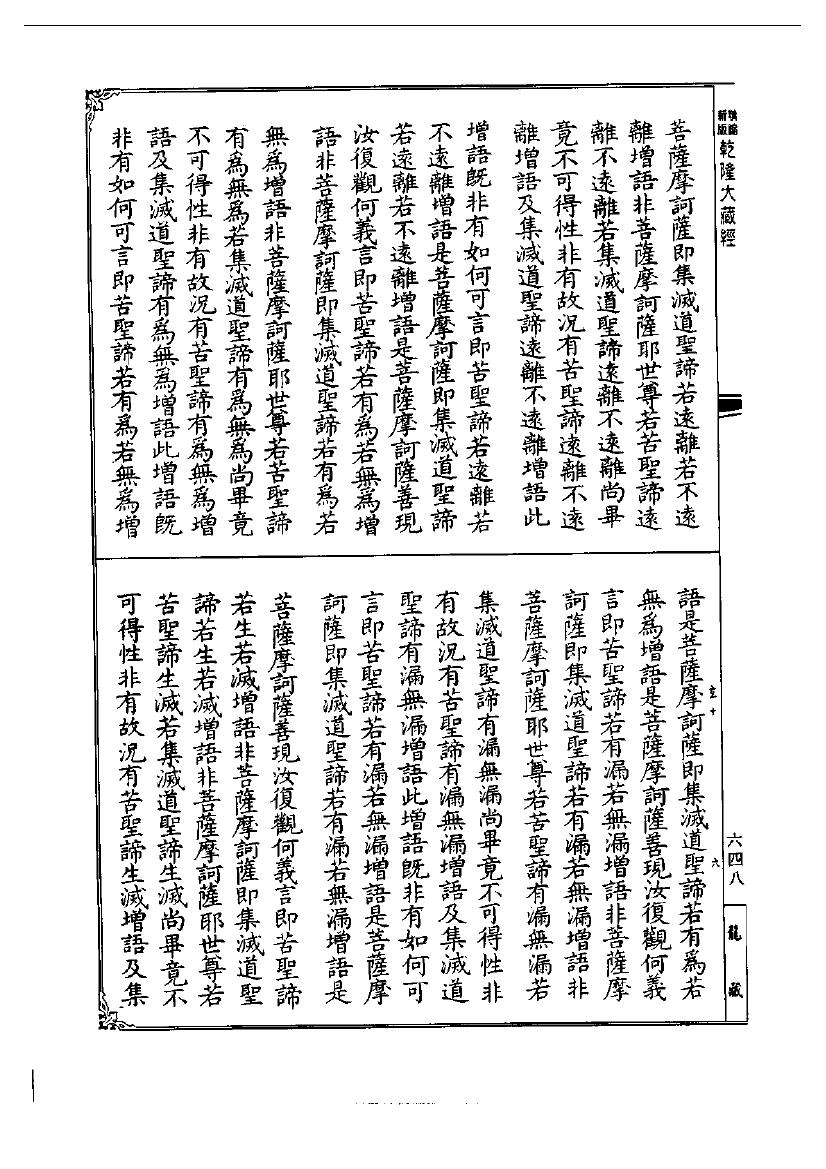 新編
新版 乾隆大藏經
菩薩摩訶薩即集滅道聖諦若遠離若不遠
離增語非菩薩摩訶薩耶世尊若苦聖諦遠
離不遠離若集滅道聖諦遠離不遠離尚畢
竟不可得性非有故況有苦聖諦遠離不遠
離增語及集滅道聖諦遠離不遠離增語此
增語既非有如何可言即苦聖諦若遠離若
不遠離增語是菩薩摩訶薩即集滅道聖諦
若遠離若不遠離增語是菩薩摩訶薩善現
汝復觀何義言即苦聖諦若有為若無為增
語非菩薩摩訶薩即集滅道聖諦若有為若
無為增語非菩薩摩訶薩耶世尊若苦聖諦
有為無為若集滅道聖諦有為無為尚畢竟
不可得性非有故況有苦聖諦有為無為增
語及集滅道聖諦有為無為增語此增語既
非有如何可言即苦聖諦若有為若無為增
語是菩薩摩訶薩即集滅道聖諦若有為若
無為增語是菩薩摩訶薩善現汝復觀何義
言即苦聖諦若有漏若無漏增語非菩薩摩
訶薩即集滅道聖諦若有漏若無漏增語非
菩薩摩訶薩耶世尊若苦聖諦有漏無漏若
集滅道聖諦有漏無漏尚畢竟不可得性非
有故況有苦聖諦有漏無漏增語及集滅道
聖諦有漏無漏增語此增語既非有如何可
言即苦聖諦若有漏若無漏增語是菩薩摩
訶薩即集滅道聖諦若有漏若無漏增語是
菩薩摩訶薩善現汝復觀何義言即苦聖諦
若生若滅增語非菩薩摩訶薩即集滅道聖
諦若生若滅增語非菩薩摩訶薩耶世尊若
苦聖諦生滅若集滅道聖諦生滅尚畢竟不
可得性非有故況有苦聖諦生滅增語及集
十 六
六四八
龍藏